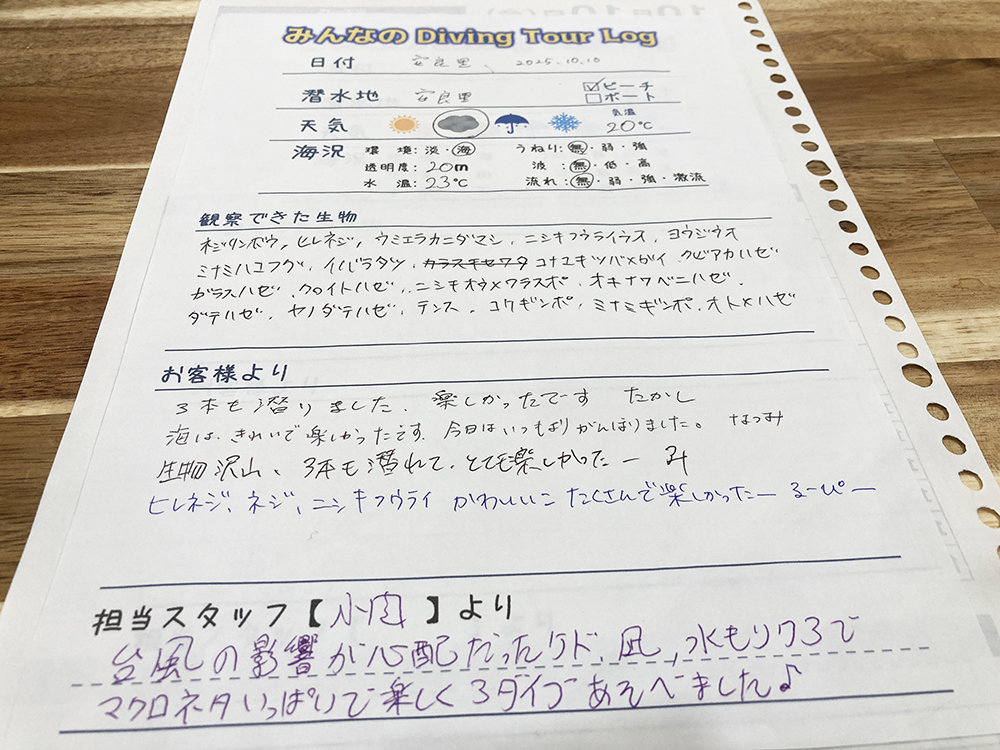 みんなの Diving Tour Log
日付 安良里、 2025.10.10
潜水地 安良里 ☑ビーチ
□ボート
天気 気温
20℃
海況 環境:淡・海 うねり:無・弱・強
透明度:20m 波:無・低・高
水温:23℃ 流れ:無・弱・強・激流
観察できた生物
ネジリンボウ, ヒレネジ, ウミエラカニダマシ, ニシキフウライウオ, ヨウジウオ
ミナミハコフグ, イバラタツ, カラスキセワタ コナユキツバメガイ クビアカハゼ
ガラスハゼ, クロイトハゼ, ニシキオオメワラスボ, オキナワベニハゼ,
ダテハゼ, ヤノダテハゼ, テンス, コケギンポ, ミナミギンポ, オトメハゼ
お客様より
3本も潜りました. 楽しかったでーす たかし
海は、きれいで楽しかったです. 今日はいつもよりがんばりました。 なつみ
生物沢山、3本も潜れて、とても楽しかったー み
ヒレネジ、ネジ、ニシキフウライ かわいいこ たくさんで楽しかったー るーぴー
担当スタッフ【 小肉 】より
台風の影響が心配だったケド、凪, 水もソク3で
マクロネタいっぱいで楽しく3ダイブあそべました♪